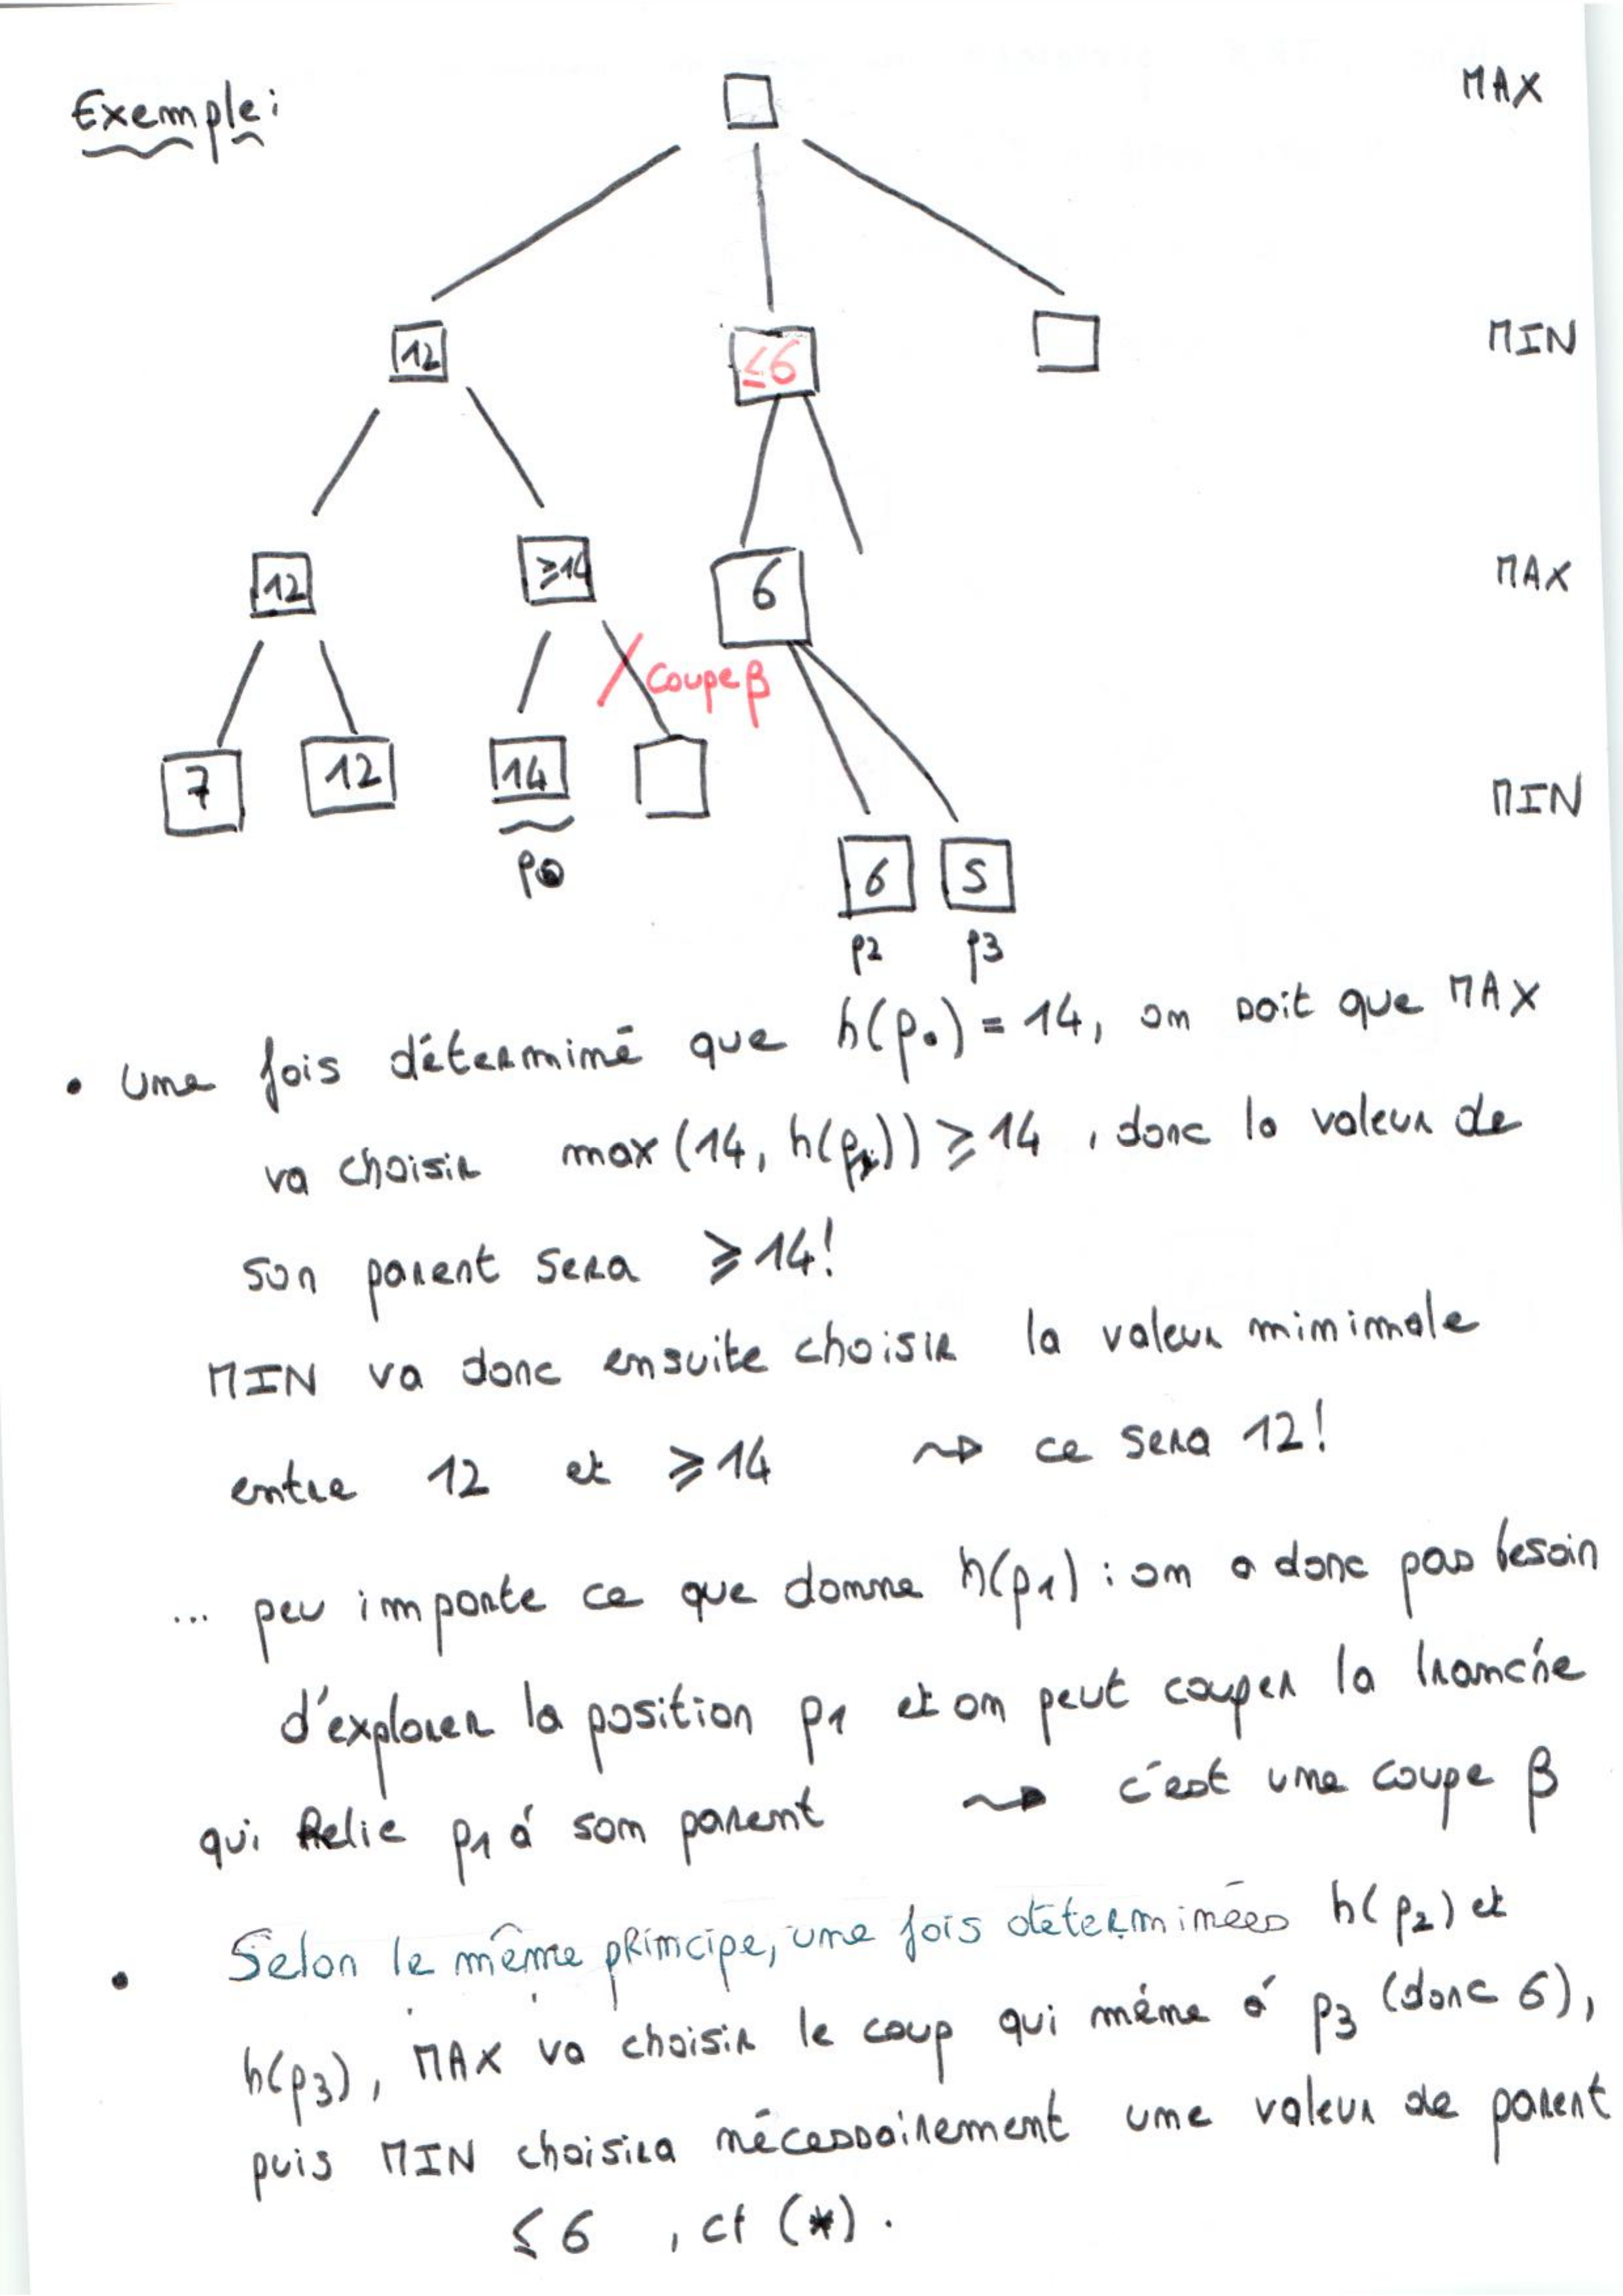 Exemple:
MAX
12
≤6
MIN
12
≥14
6
MAX
coupe β
7
12
14
MIN
p0
6
5
p2
p3
• une fois déterminé que h(p0) = 14, on sait que MAX
va choisir max(14, h(p1)) ≥ 14, donc la valeur de
son parent sera ≥ 14!
MIN va donc ensuite choisir la valeur minimale
entre 12 et ≥ 14 ⇝ ce sera 12!
... peu importe ce que donne h(p1) : on a donc pas besoin
d'explorer la position p1 et on peut couper la branche
qui relie p1 à son parent ⇝ c'est une coupe β
• Selon le même principe, une fois déterminées h(p2) et
h(p3), MAX va choisir le coup qui mène à p3 (donc 6),
puis MIN choisira nécessairement une valeur de parent
≤ 6 , cf (*).